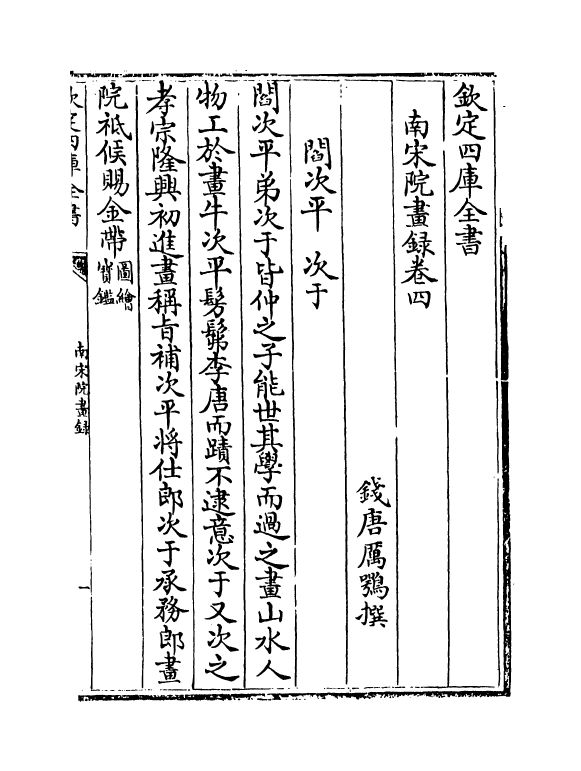 欽定四庫全書
南宋院畫録卷四
錢唐厲鶚撰
閻次平 次于
閻次平弟次于皆仲之子能世其學而過之畫山水人
物工於畫牛次平髣髴李唐而蹟不逮意次于又次之
孝宗隆興初進畫稱旨補次平將仕郎次于承務郎畫
院祗候賜金帶圖繪寶鑑
欽定四庫全書
南宋院畫録
一